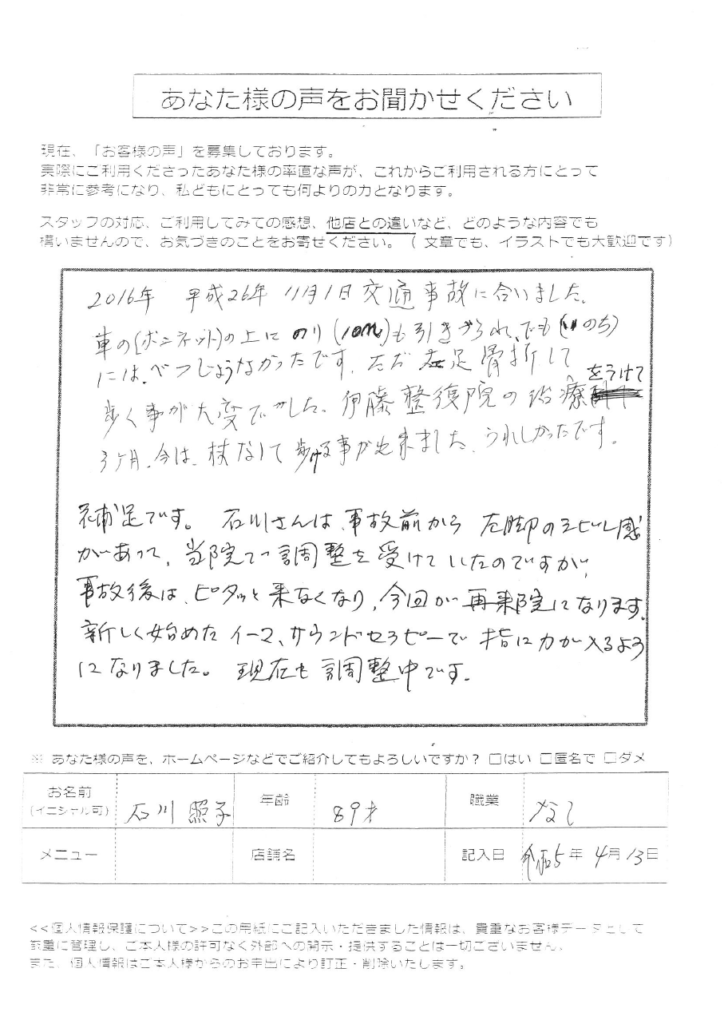 あなた様の声をお聞かせください
現在、「お客様の声」を募集しております。
実際にご利用くださったあなた様の率直な声が、これからご利用される方にとって
非常に参考になり、私どもにとっても何よりの力となります。
スタッフの対応、ご利用してみての感想、他店との違いなど、どのような内容でも
構いませんので、お気づきのことをお寄せください。（ 文章でも、イラストでも大歓迎です）
2016年 平成26年 11月1日 交通事故に合いました、
車の(ボンネット)の上に のり (10m)も引きずられ、でも(いのち)
には、べつじょうなかったです、ただ 左足骨折して
歩く事が大変でした、伊藤整復院の治療をうけて
3ヶ月、今は、杖なしで歩ける事が出来ました、うれしかったです。
補足です。 石川さんは、事故前から 左脚のシビレ感
があって、当院で調整を受けていたのですが、
事故後は、ピタッと来なくなり、今回が再来院になります。
新しく始めたイーマ・サウンドセラピーで 指に力が入るよう
になりました。 現在も調整中です。
※ あなた様の声を、ホームページなどでご紹介してもよろしいですか？ □はい □匿名で □ダメ
お名前
(イニシャル可) 石川 照子 年齢 89才 職業 なし
メニュー 店舗名 記入日 令和5年 4月13日
<<個人情報保護について>>この用紙にご記入いただきました情報は、貴重なお客様データとして
厳重に管理し、ご本人様の許可なく外部への開示・提供することは一切ございません。
また、個人情報はご本人様からのお申出により訂正・削除いたします。